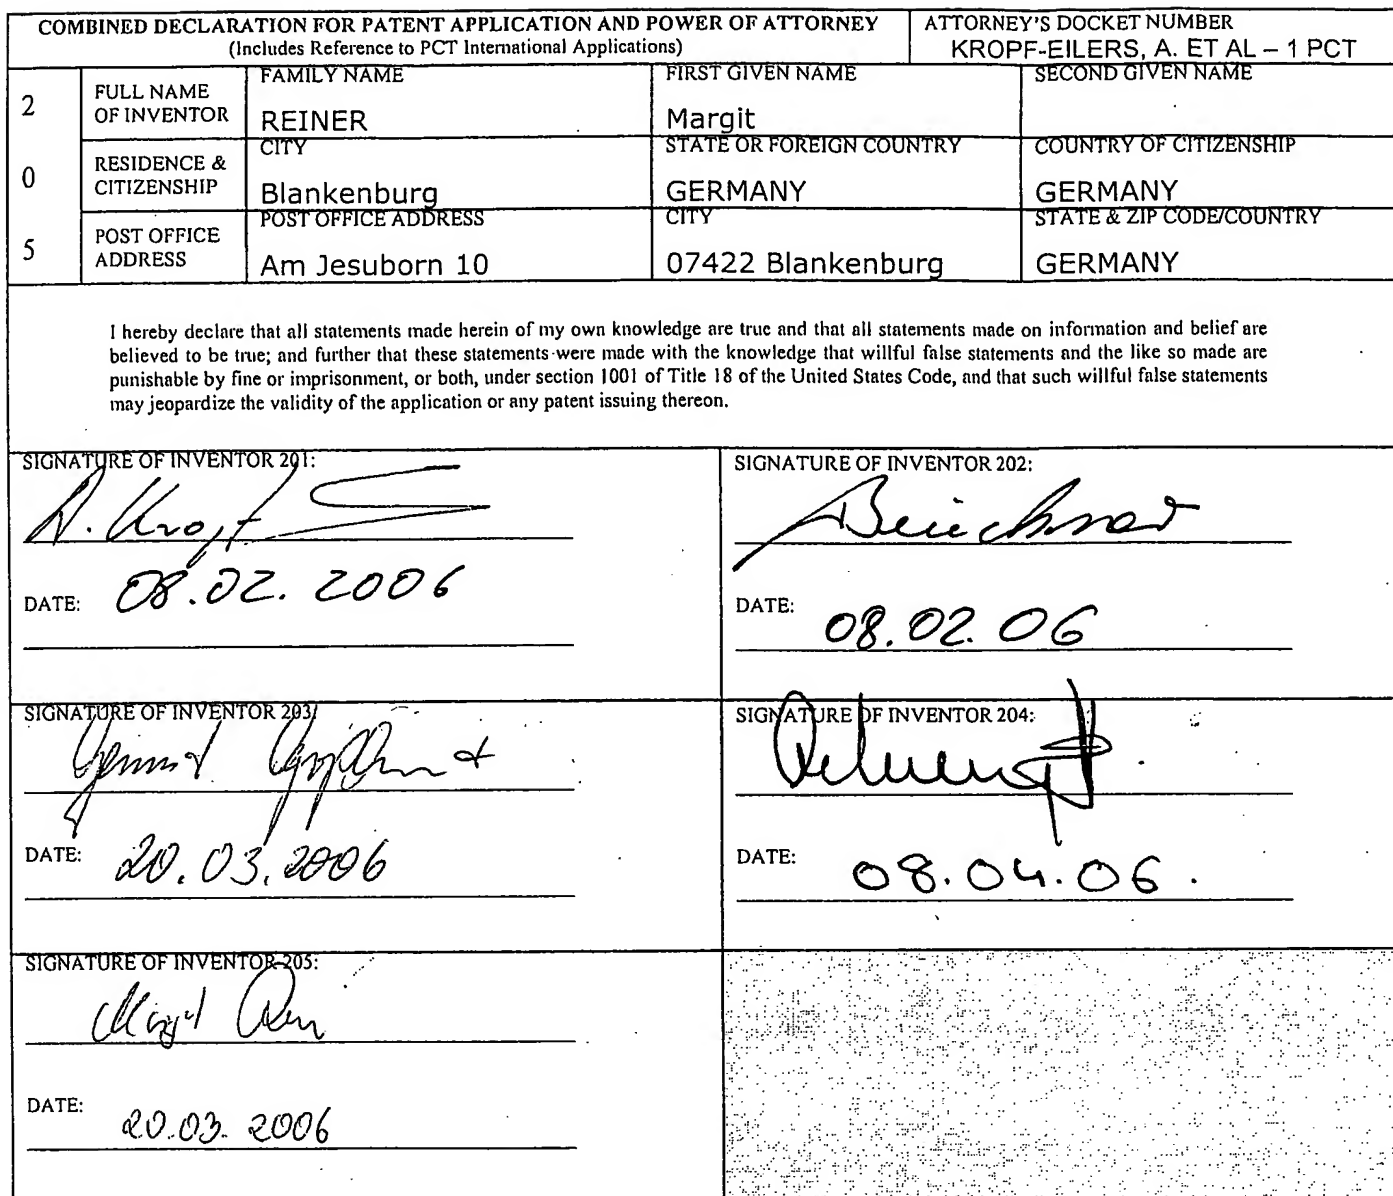 COMBINED DECLARATION FOR PATENT APPLICATION AND POWER OF ATTORNEY
(Includes Reference to PCT International Applications)
ATTORNEY'S DOCKET NUMBER
KROPF-EILERS, A. ET AL – 1 PCT
2
0
5
FULL NAME
OF INVENTOR
FAMILY NAME
REINER
FIRST GIVEN NAME
Margit
SECOND GIVEN NAME
RESIDENCE &
CITIZENSHIP
CITY
Blankenburg
STATE OR FOREIGN COUNTRY
GERMANY
COUNTRY OF CITIZENSHIP
GERMANY
POST OFFICE
ADDRESS
POST OFFICE ADDRESS
Am Jesuborn 10
CITY
07422 Blankenburg
STATE & ZIP CODE/COUNTRY
GERMANY
I hereby declare that all statements made herein of my own knowledge are true and that all statements made on information and belief are
believed to be true; and further that these statements were made with the knowledge that willful false statements and the like so made are
punishable by fine or imprisonment, or both, under section 1001 of Title 18 of the United States Code, and that such willful false statements
may jeopardize the validity of the application or any patent issuing thereon.
SIGNATURE OF INVENTOR 201:
A. Kropf
DATE: 08.02.2006
SIGNATURE OF INVENTOR 202:
DATE: 08.02.06
SIGNATURE OF INVENTOR 203:
DATE: 20.03.2006
SIGNATURE OF INVENTOR 204:
DATE: 08.04.06.
SIGNATURE OF INVENTOR 205:
Margit
DATE: 20.03.2006